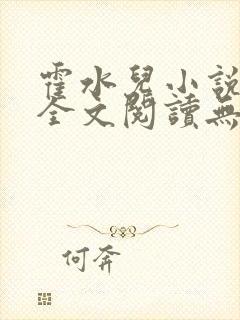 霍水兒小說
全文閱讀無
何奔